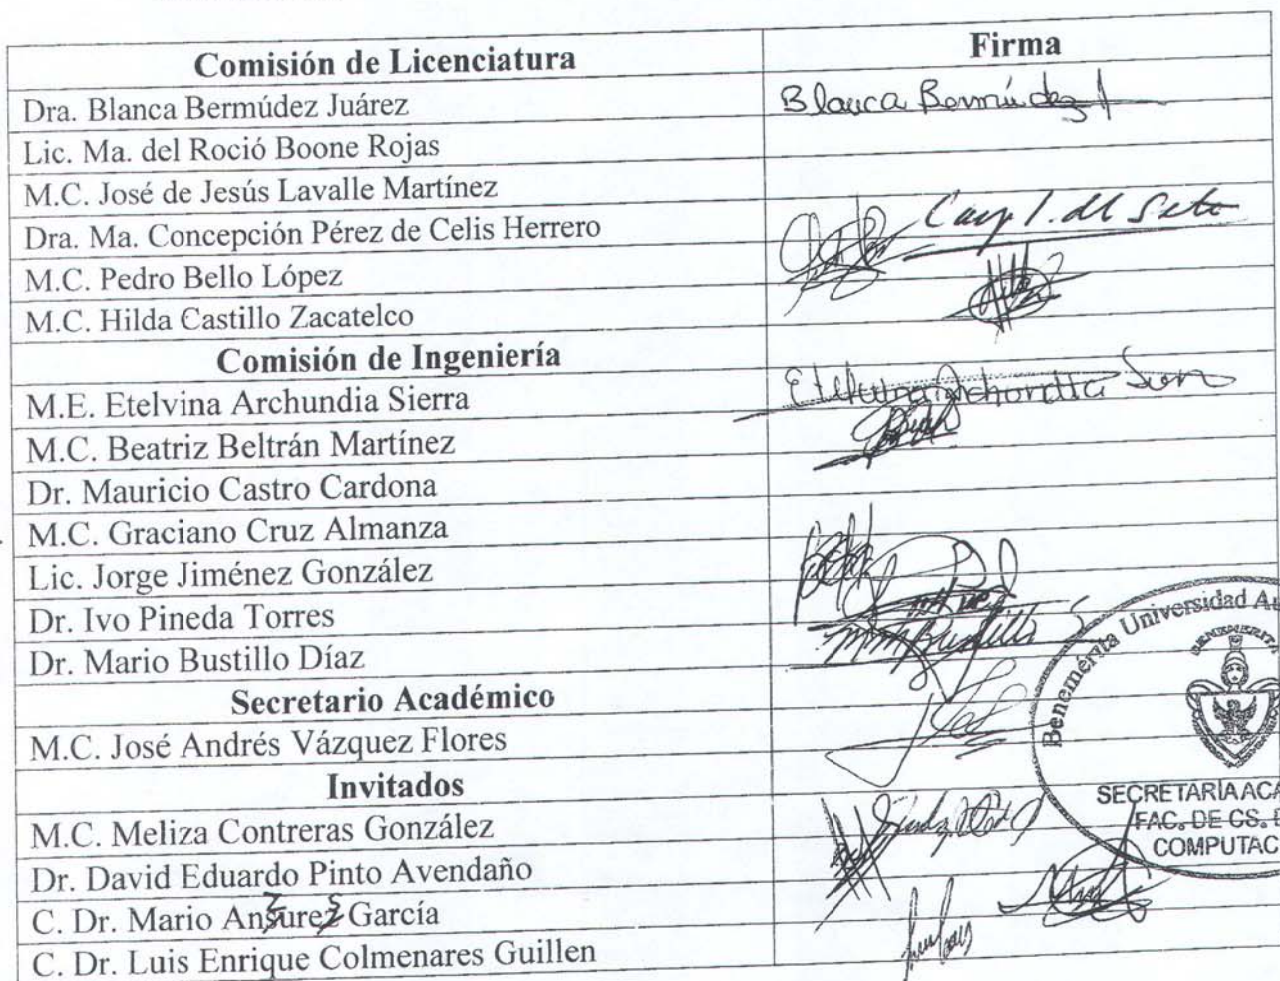 Comisión de Licenciatura Firma
Dra. Blanca Bermúdez Juárez Blanca Bermúdez
Lic. Ma. del Roció Boone Rojas
M.C. José de Jesús Lavalle Martínez
Dra. Ma. Concepción Pérez de Celis Herrero
M.C. Pedro Bello López
M.C. Hilda Castillo Zacatelco
Comisión de Ingeniería
M.E. Etelvina Archundia Sierra Etelvina Archundia Sierra
M.C. Beatriz Beltrán Martínez
Dr. Mauricio Castro Cardona
M.C. Graciano Cruz Almanza
Lic. Jorge Jiménez González
Dr. Ivo Pineda Torres
Dr. Mario Bustillo Díaz
Secretario Académico
M.C. José Andrés Vázquez Flores
Invitados
M.C. Meliza Contreras González
Dr. David Eduardo Pinto Avendaño
C. Dr. Mario Anzures García
C. Dr. Luis Enrique Colmenares Guillen
Benemérita Universidad Au
SECRETARÍA ACA
FAC. DE CS. D
COMPUTAC